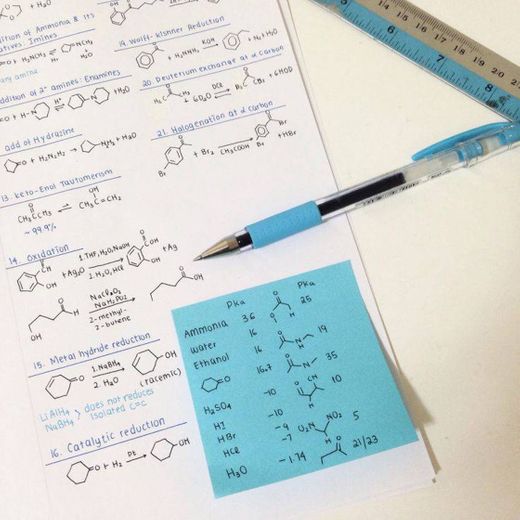 dition of Ammonia & its
atives: Imines
+ H₂NCH₃ ⇌ NCH₃
H₂O
ary amine
ddition of 2° amines: Enamines
H⁺
+ H₂O
add of Hydrazine
O + H₂N₂H₂ → NH₂ + H₂O
13. Keto-Enol Tautomerism
O OH
CH₃CCH₃ ⇌ CH₃C=CH₂
~99.9%
14. Oxidation
O
CH
OH
+ Ag₂O
1. THF, H₂O, NaOH
2. H₂O, HCl
O
COH
OH
+ Ag
O
H
NaClO₂
NaH₂PO₄
2-methyl-
2-butene
O
OH
15. Metal hydride reduction
O
1. NaBH₄
2. H₂O
OH
(racemic)
LiAlH₄
NaBH₄
> does not reduces
isolated C=C
16. Catalytic reduction
O + H₂
Pt
OH
19. Wolff-Kishner Reduction
+ H₂NNH₂
KOH
+ N₂ + H₂O
20. Deuterium exchange at α Carbon
H₃C CH₃ + 6D₂O
DCl
D₃C CD₃ + 6HOD
21. Halogenation at α carbon
O
Br
+ Br₂
CH₃COOH
O
Br
Br
+ HBr
Pka Pka
Ammonia 36 25
Water 16 19
Ethanol 16
O 16.7 35
H₂SO₄ -10 10
HI -10
HBr -9 O₂N NO₂ 5
HCl -7
H₃O -1.74 21/23
14 15 16 17 18 19 20
6 7 8